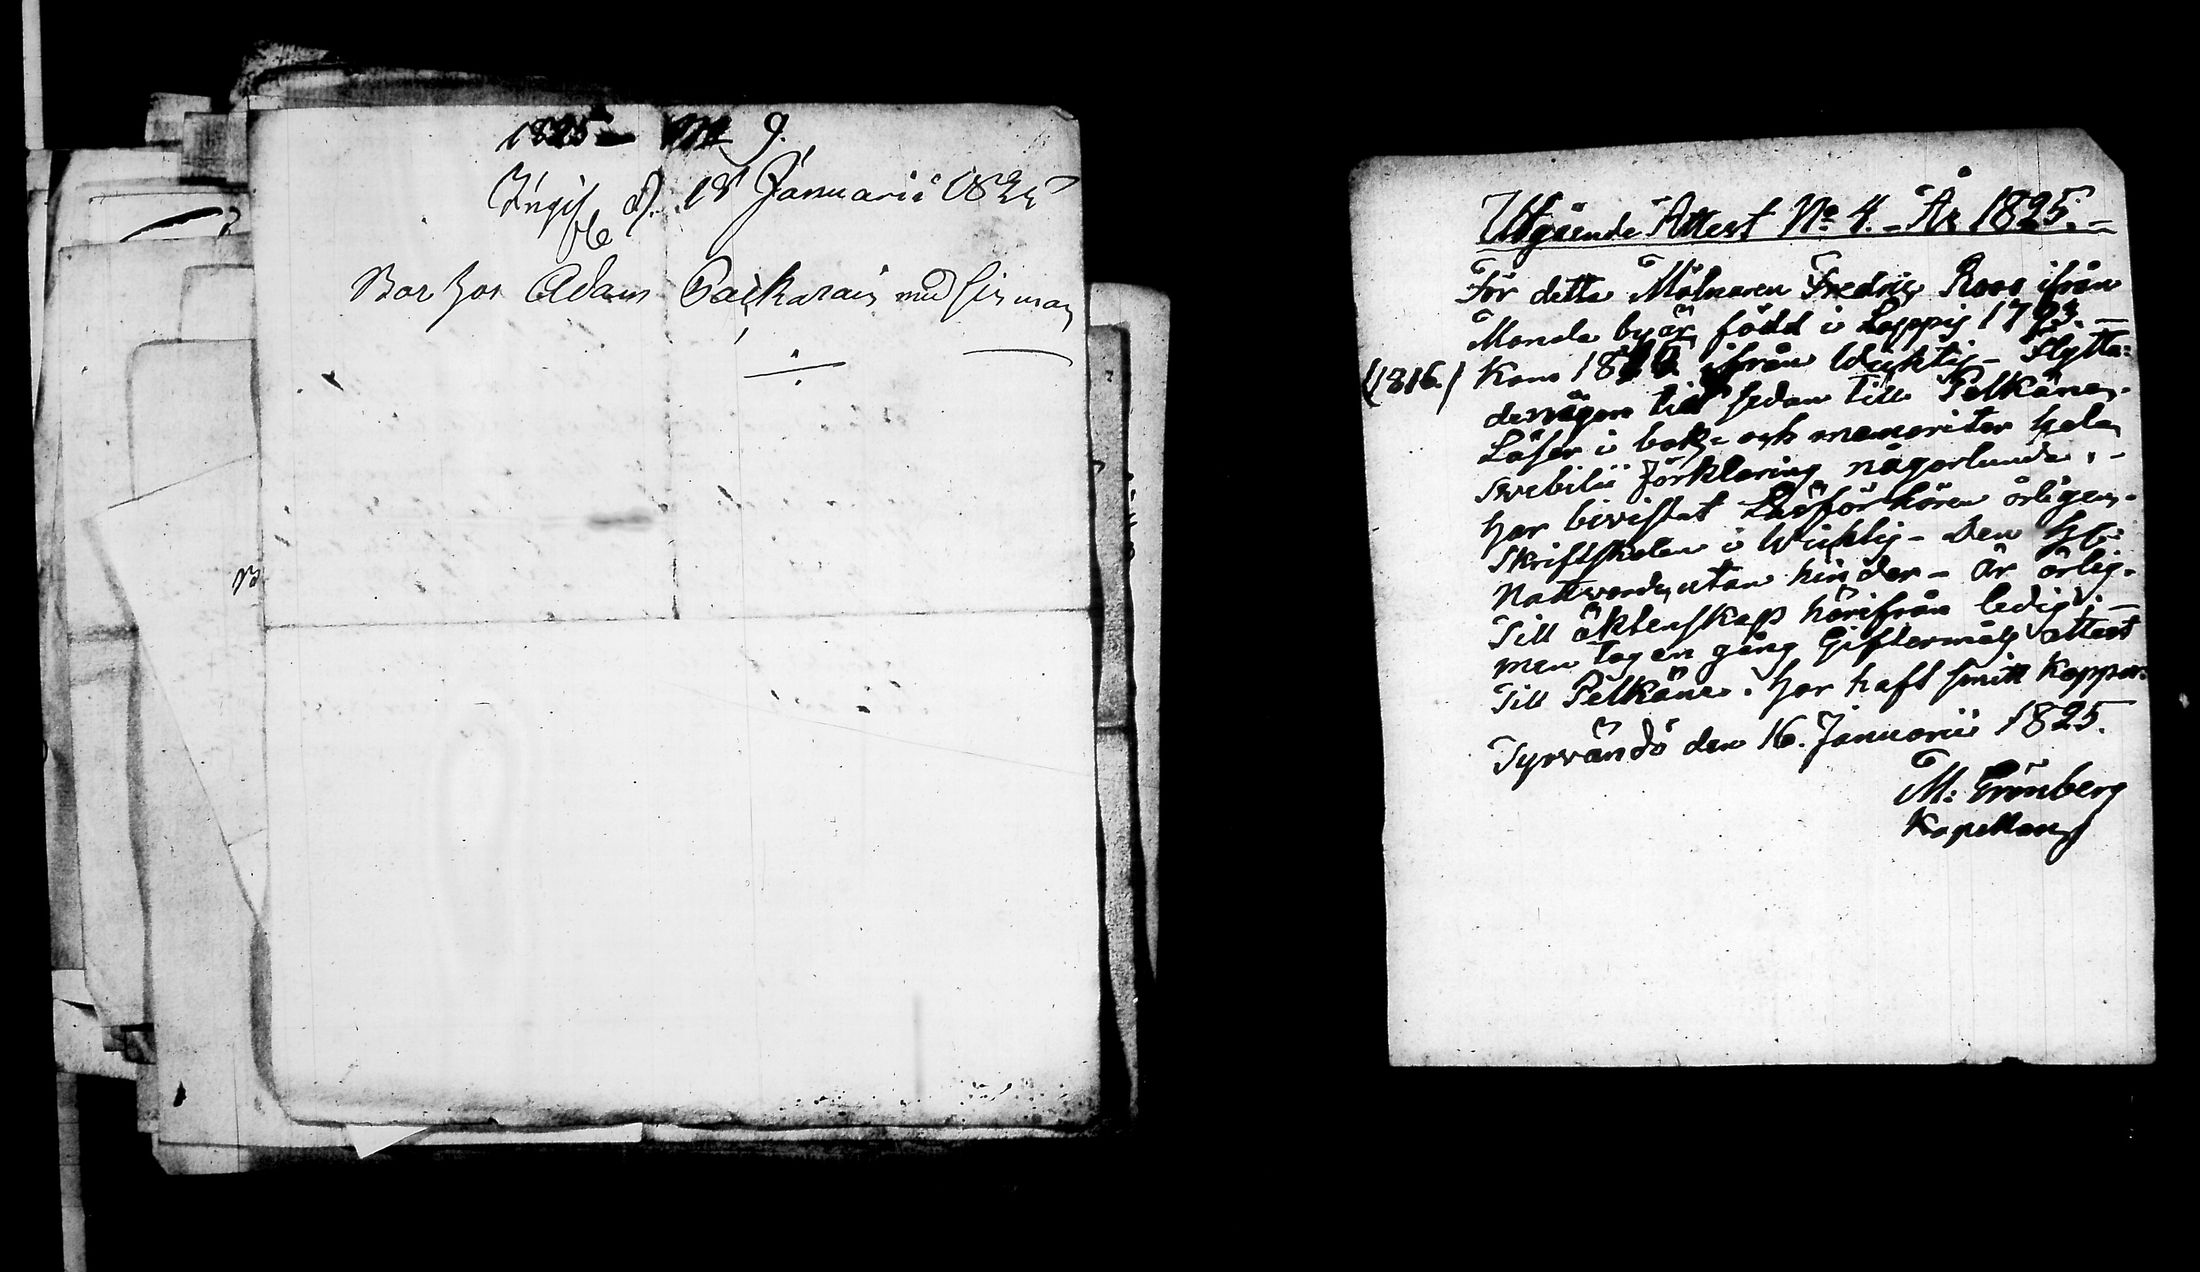 1825 N 9.
Ingif d. 18 Januarii 1825
Bor hos Adam med
B
Utgående Attest No 4. - År 1825. -
För detta Mölnaren Fredric Roos ifrån
Monda by är född i Loppis 1793. -
(1816.) Kom ifrån Wichtis - Flytta-
de någon tid sedan till Pelkäne.
Läser i bok- och memoriter hela
Swebilii Förklaring någorlunda. -
har bivistat Läsförhören årligen.
Skriftskolan i Wichtis - Den H:
Nattvard utan hinder - Är ärlig.
Till äktenskap härifrån ledig. -
men tog en gång Giftermåls attest
Till Pelkäne. har haft smitt Koppor.
Tyrvändö den 16. Januarii 1825.
M: Grönberg
Kapellan